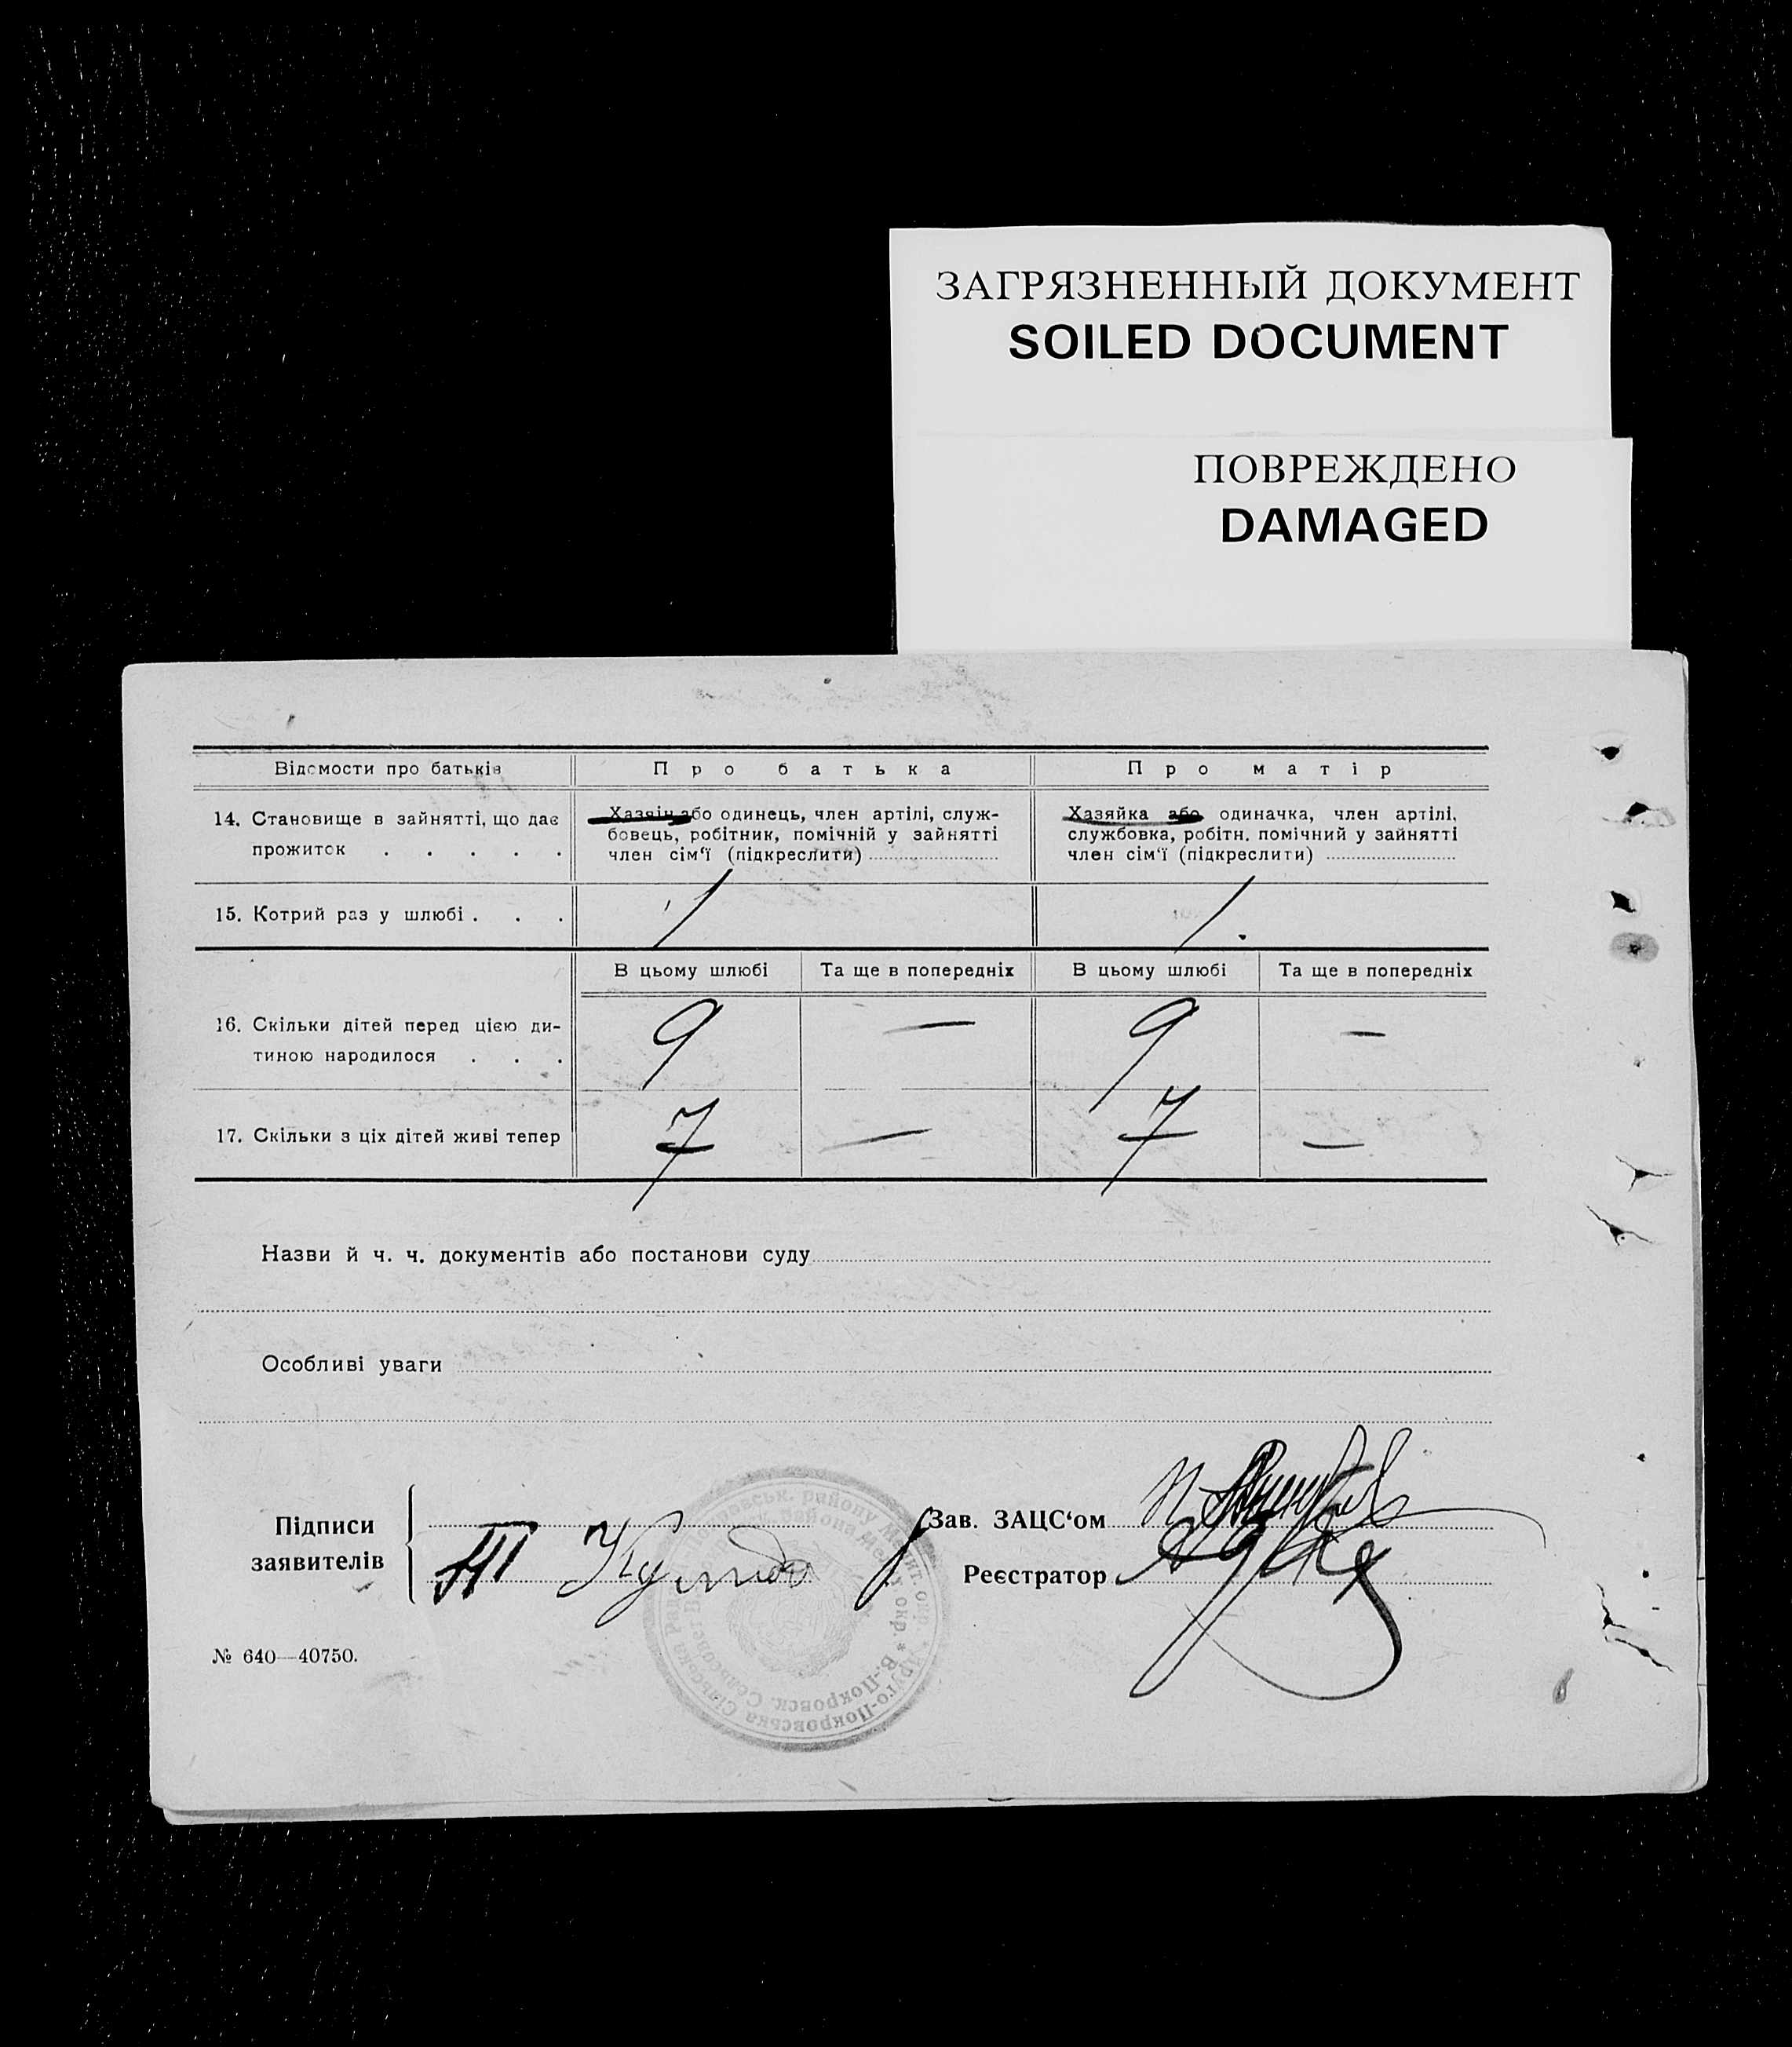 ЗАГРЯЗНЕННЫЙ ДОКУМЕНТ
SOILED DOCUMENT
ПОВРЕЖДЕНО
DAMAGED
Відомости про батьків Про батька Про матір
14. Становище в зайнятті, що дає
прожиток . . . . .
Хазяін або одинець, член артілі, служ-
бовець, робітник, помічній у зайнятті
член сім‘ї (підкреслити)
Хазяйка або одиначка, член артілі,
службовка, робітн. помічний у зайнятті
член сім‘ї (підкреслити)
15. Котрий раз у шлюбі . . . 1 1.
В цьому шлюбі Та ще в попередніх В цьому шлюбі Та ще в попередніх
16. Скільки дітей перед цією ди-
тиною народилося . . . 9 — 9 —
17. Скільки з ціх дітей живі тепер 7 — 7 —
Назви й ч. ч. документів або постанови суду
Особливі уваги
Підписи
заявителів
Зав. ЗАЦС‘ом
Реєстратор
№ 640—40750.